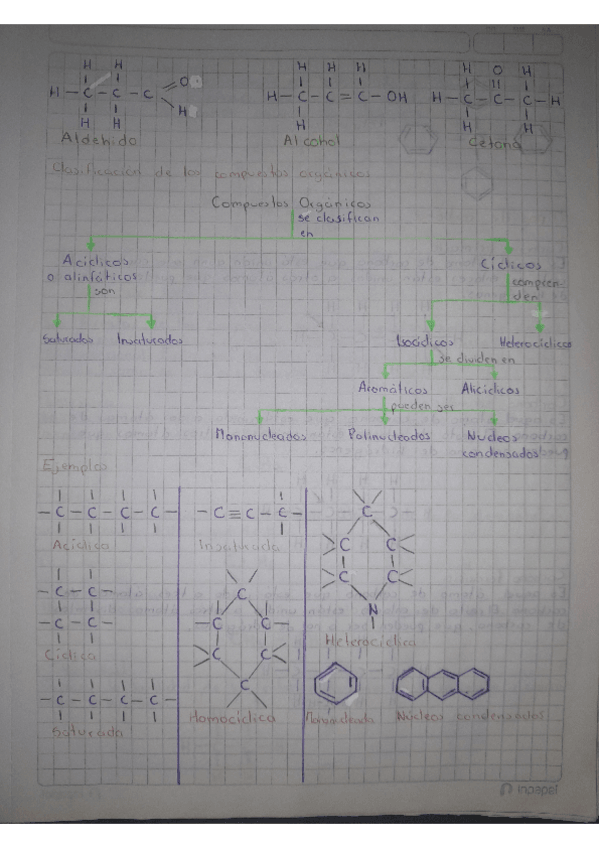 H H
H - C - C - C O
H H H
Aldehido
H H H
H - C - C = C - OH
H
Alcohol
H O H
H - C - C - C - H
H H
Cetona
Clasificacion de los compuestos orgánicos
Compuestos Orgánicos
se clasifican
en
Aciclicos
o alinfáticos
son
Saturados Insaturados
Cíclicos
compren-
den
Isociclicos Heterociclicos
se dividen en
Aromáticos Aliciclicos
pueden ser
Mononucleados Polinucleados Nucleos
condensados
Ejemplos
- C - C - C - C -
Aciclica
- C ≡ C - C -
Insaturada
C
C C
C C
N
Heterociclica
- C - C -
- C - C -
Ciclica
C
C C
C C
C
Homociclica
- C - C - C - C -
Saturada
Mononucleada
Núcleos condensados
inpapel